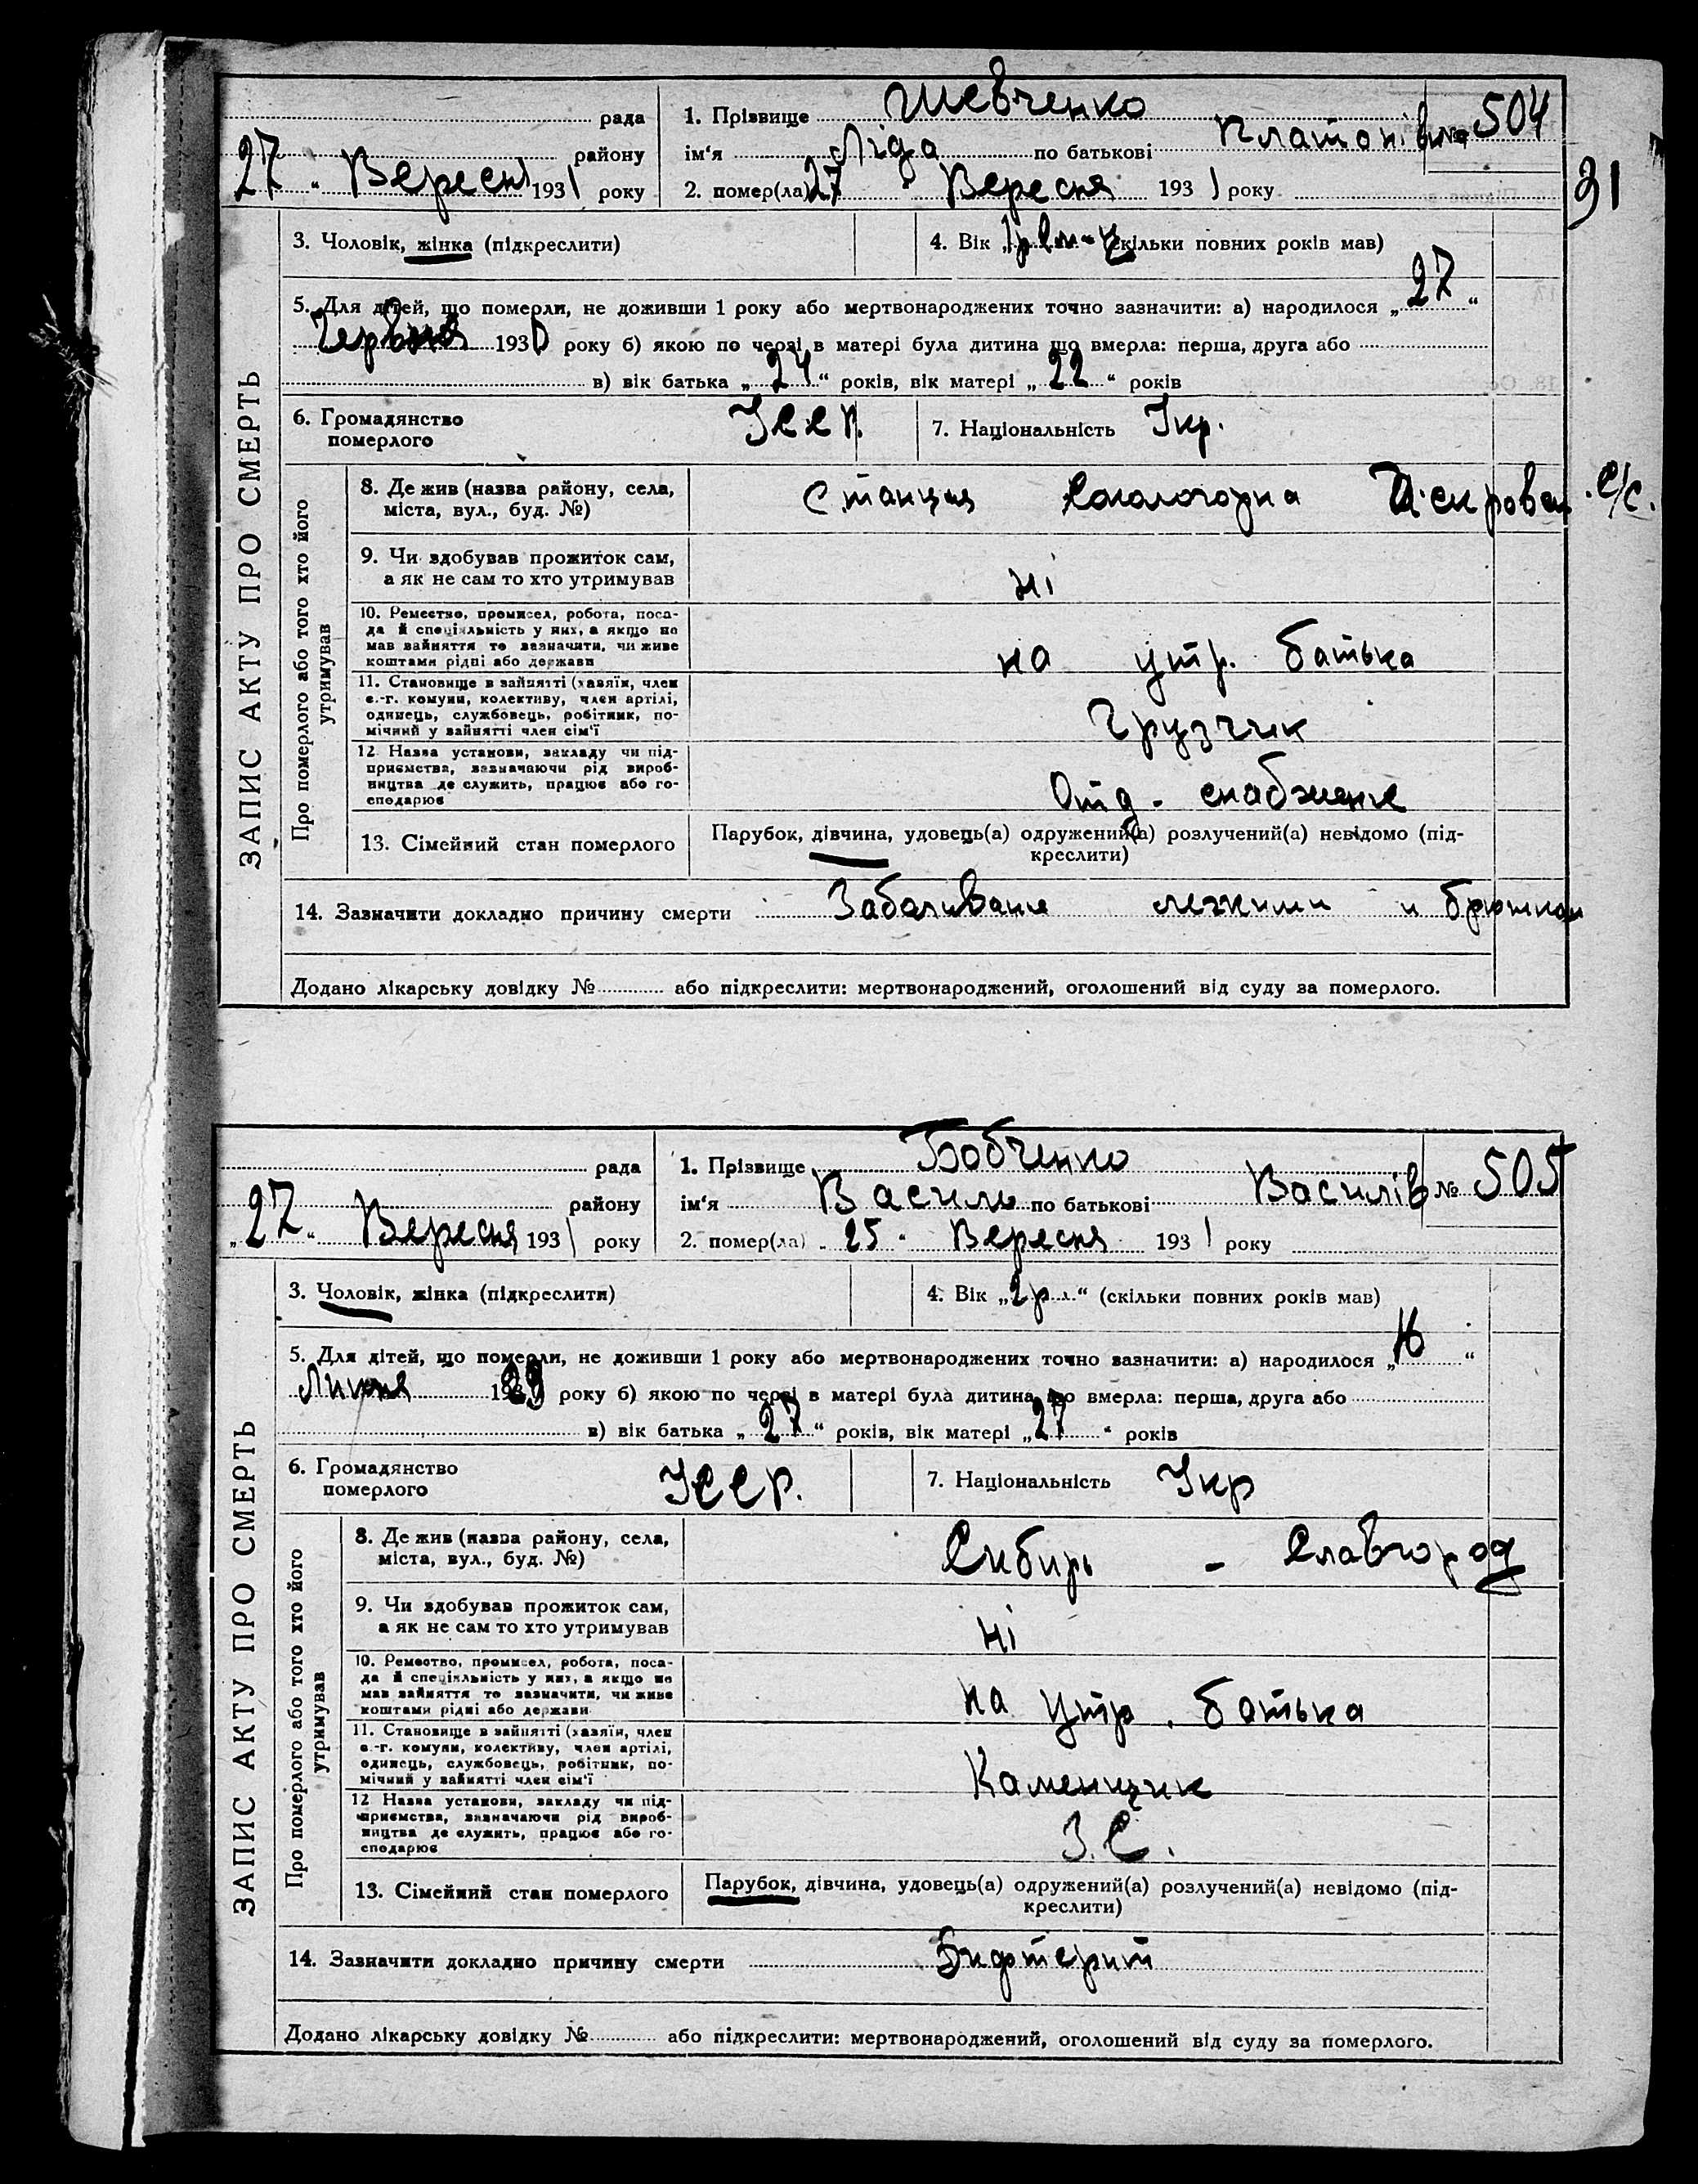 рада
1. Прізвище Шевченко
№ 504
району
ім'я Ліда по батькові Платонівна
27 " Вересня 1931 року
2. помер(ла) 27 " Вересня 1931 року
31
3. Чоловік, жінка (підкреслити)
4. Вік (скільки повних років мав)
5. Для дітей, що померли, не доживши 1 року або мертвонароджених точно зазначити: а) народилося „ 27 “
Червня 1930 року б) якою по черзі в матері була дитина що вмерла: перша, друга або
в) вік батька „ 24 “ років, вік матері „ 22 “ років
6. Громадянство
померлого
УССР.
7. Національність Укр.
ЗАПИС АКТУ ПРО СМЕРТЬ
Про померлого або того хто його
утримував
8. Де жив (назва району, села,
міста, вул., буд. №)
Станция Сокологорна с/с.
9. Чи здобував прожиток сам,
а як не сам то хто утримував
ні
10. Ремество, промисел, робота, поса-
да й спеціяльність у них, а якщо не
мав зайняття то зазначити, чи живе
коштами рідні або держави
на утр. батька
11. Становище в зайнятті (хазяїн, член
с.-г. комуни, колективу, член артілі,
одинець, службовець, робітник, по-
мічний у зайнятті член сім'ї
Грузчик
12. Назва установи, закладу чи під-
приємства, зазначаючи рід вироб-
ництва де служить, працює або го-
сподарює
Отд. снабжение
13. Сімейний стан померлого
Парубок, дівчина, удовець(а) одружений(а) розлучений(а) невідомо (під-
креслити)
14. Зазначити докладно причину смерти легкими и
Додано лікарську довідку № або підкреслити: мертвонароджений, оголошений від суду за померлого.
рада
1. Прізвище Бобченко
№ 505
району
ім'я Василь по батькові Василів
„ 27 “ Вересня 1931 року
2. помер(ла) „ 25 “ Вересня 1931 року
3. Чоловік, жінка (підкреслити)
4. Вік „ 2 р. “ (скільки повних років мав)
5. Для дітей, що померли, не доживши 1 року або мертвонароджених точно зазначити: а) народилося „ 16 “
Липня 1929 року б) якою по черзі в матері була дитина що вмерла: перша, друга або
в) вік батька „ 27 “ років, вік матері „ 27 “ років
6. Громадянство
померлого
УССР.
7. Національність Укр
ЗАПИС АКТУ ПРО СМЕРТЬ
Про померлого або того хто його
утримував
8. Де жив (назва району, села,
міста, вул., буд. №)
Сибирь - Славгород
9. Чи здобував прожиток сам,
а як не сам то хто утримував
ні
10. Ремество, промисел, робота, поса-
да й спеціяльність у них, а якщо не
мав зайняття то зазначити, чи живе
коштами рідні або держави
на утр. батька
11. Становище в зайнятті (хазяїн, член
с.-г. комуни, колективу, член артілі,
одинець, службовець, робітник, по-
мічний у зайнятті член сім'ї
Каменщик
12 Назва установи, закладу чи під-
приємства, зазначаючи рід вироб-
ництва де служить, працює або го-
сподарює
З.С.
13. Сімейний стан померлого
Парубок, дівчина, удовець(а) одружений(а) розлучений(а) невідомо (під-
креслити)
14. Зазначити докладно причину смерти Дифтерит
Додано лікарську довідку № або підкреслити: мертвонароджений, оголошений від суду за померлого.